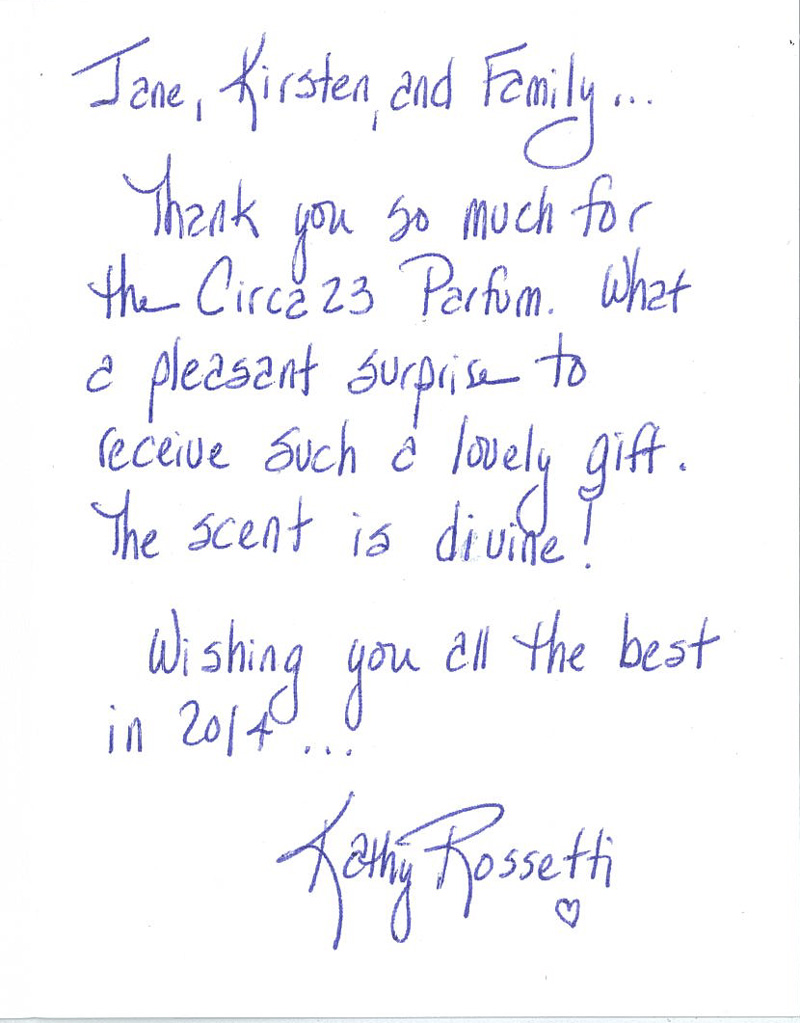 Jane, Kirsten, and Family...
Thank you so much for
the Circa 23 Parfum. What
a pleasant surprise to
receive such a lovely gift.
The scent is divine!
Wishing you all the best
in 2014...
Kathy Rossetti